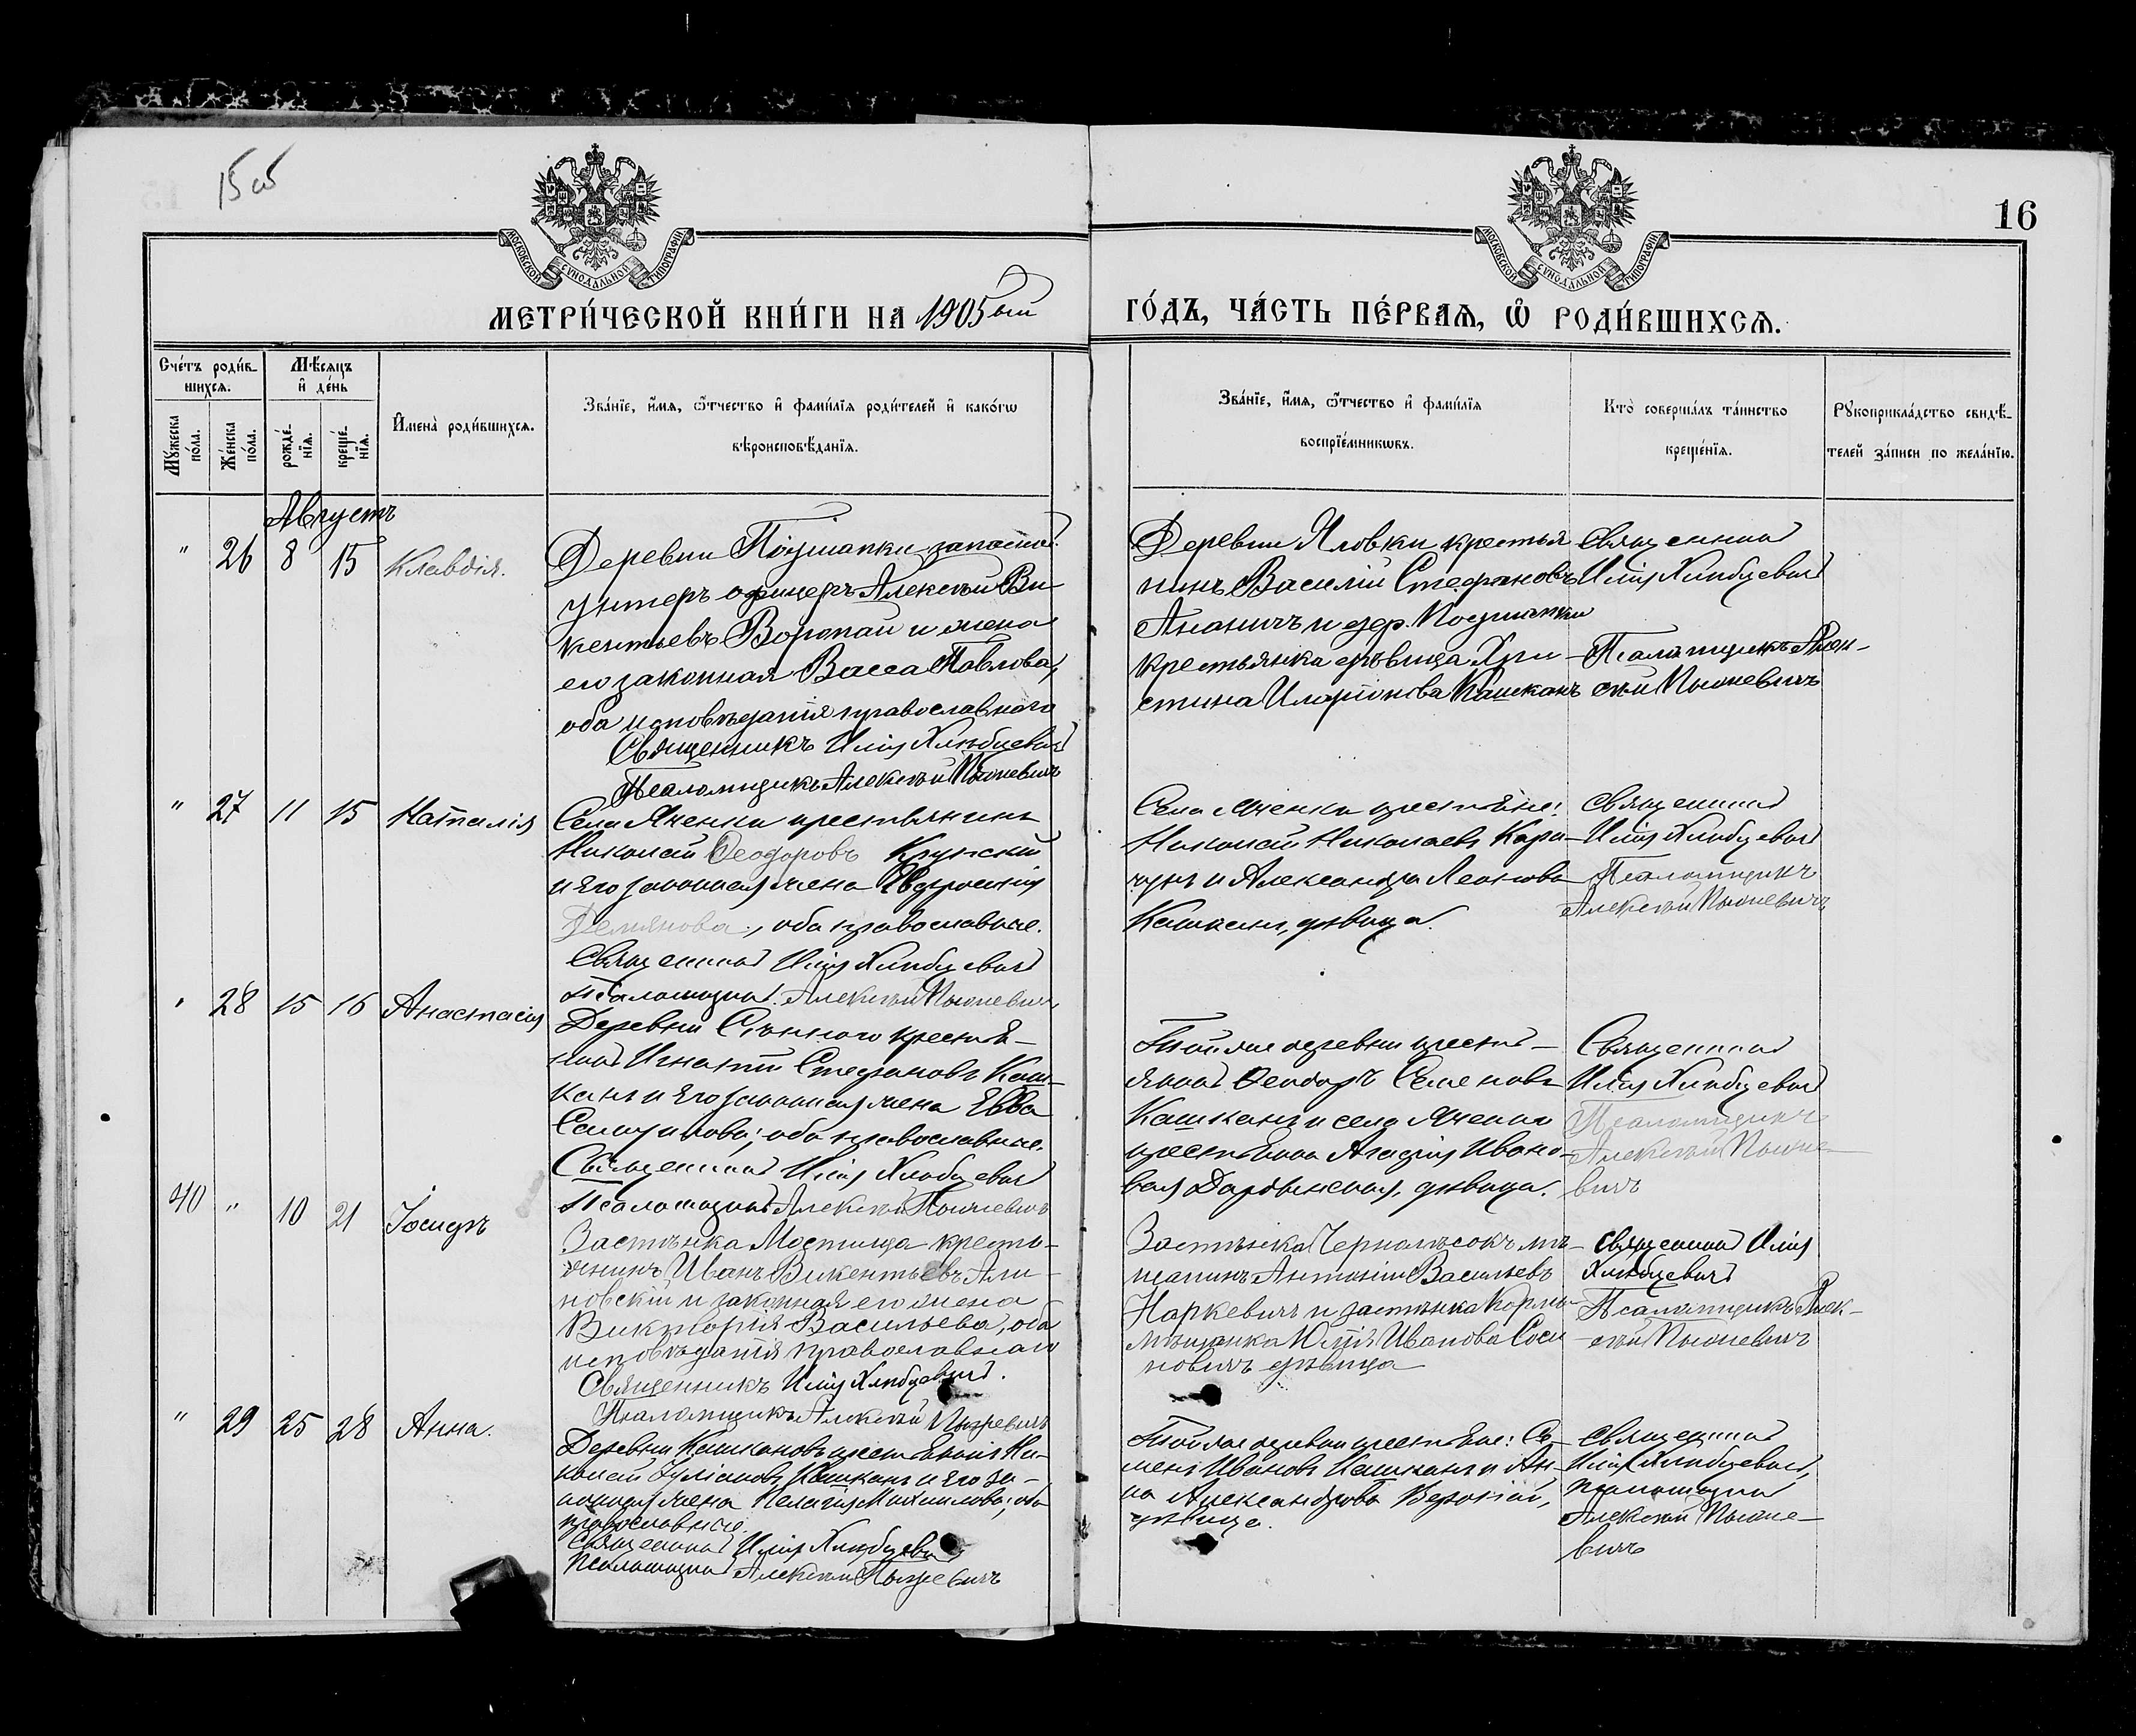 15 об
16
МОСКОВСКОЙ СѴНОДАЛЬНОЙ ТИПОГРАФІИ
МОСКОВСКОЙ СѴНОДАЛЬНОЙ ТИПОГРАФІИ
МЕТРИ́ЧЕСКОЙ КНИ́ГИ НА 1905ый
ГО́ДЪ, ЧА́СТЬ ПЕ́РВАѦ, Ѽ РОДИ́ВШИХСѦ.
Сче́тъ роди́в-
шихсѧ.
Мꙋ́жеска по́ла.
Же́нска по́ла.
Мѣ́сѧцъ
и҆ де́нь
рожде́-
нїѧ.
креще́-
нїѧ.
И҆мена̀ роди́вшихсѧ.
Зва́нїе, и҆́мѧ, ѻ҆́тчество и҆ фами́лїѧ роди́телей и҆ како́гѡ
вѣроисповѣ́данїѧ.
Зва́нїе, и҆́мѧ, ѻ҆́тчество и҆ фами́лїѧ
воспрїе́мникѡвъ.
Кто̀ соверша́лъ та́инство
креще́нїѧ.
Рꙋкоприкла́дство свидѣ́-
телей за́писи по жела́нїю.
Августъ
" 26 8 15 Клавдія.
Деревни запасной
унтеръ офицеръ Алексѣй Ви
кентьевъ Воропай и жена
его законная Васса Павлова,
оба исповѣданія православнаго
Священникъ Илія Хлѣбцевичъ
Псаломщикъ Алексѣй
Деревни Яловки крестья
нинъ Василій Стефановъ
Ананичъ и дер.
крестьянка дѣвица Хри-
стина Иларіонова Кашканъ
Священникъ
Илія Хлѣбцевичъ
Псаломщикъ Алек-
сѣй
" 27 11 15 Наталія
Села Яченки крестьянинъ
Николай Ѳеодоровъ Крупскій
и его законная жена Евфросинія
Демянова, оба православные.
Священникъ Илія Хлѣбцевичъ
Псаломщикъ Алексѣй
Села Яченки крестьяне:
Николай Николаевъ Кора-
чунъ и Александра Леонова
Кашканъ, дѣвица.
Священникъ
Илія Хлѣбцевичъ
Псаломщикъ
Алексѣй
" 28 15 16 Анастасія
Деревни Сѣнного крестья-
нинъ Игнатій Стефановъ Каш-
канъ и его законная жена Евва
оба православные.
Священникъ Илія Хлѣбцевичъ
Псаломщикъ Алексѣй
Той же деревни кресть-
янинъ Ѳеодоръ Семеновъ
Кашканъ и села Яченки
крестьянка Агафія Ивано-
вая дѣвица.
Священникъ
Илія Хлѣбцевичъ
Псаломщикъ
Алексѣй
вичъ
40 " 10 21 Іосифъ
Застѣнка Мостища кресть-
янинъ Иванъ Викентьевъ Али-
новскій и законная его жена
Викторія Васильева, оба
исповѣданія православнаго
Священникъ Илія Хлѣбцевичъ.
Псаломщикъ Алексѣй
Застѣнка Чернолѣсокъ мѣ-
щанинъ Антоній Васильевъ
Наркевичъ и застѣнка
мѣщанка Юлія Иванова Соси
новичъ дѣвица
Священникъ Илія
Хлѣбцевичъ
Псаломщикъ Алек-
сѣй
" 29 25 28 Анна.
Деревни Кашкановъ крестьянинъ Ни-
колай Іуліановъ Кашканъ и его за-
конная жена Пелагія Михаилова, оба
православные.
Священникъ Илія Хлѣбцевичъ
Псаломщикъ Алексѣй
Той же деревни крестьяне: Се-
менъ Ивановъ Кашканъ и Ан-
на Александрова
дѣвица.
Священникъ
Илія Хлѣбцевичъ,
Псаломщикъ
Алексѣй
вичъ